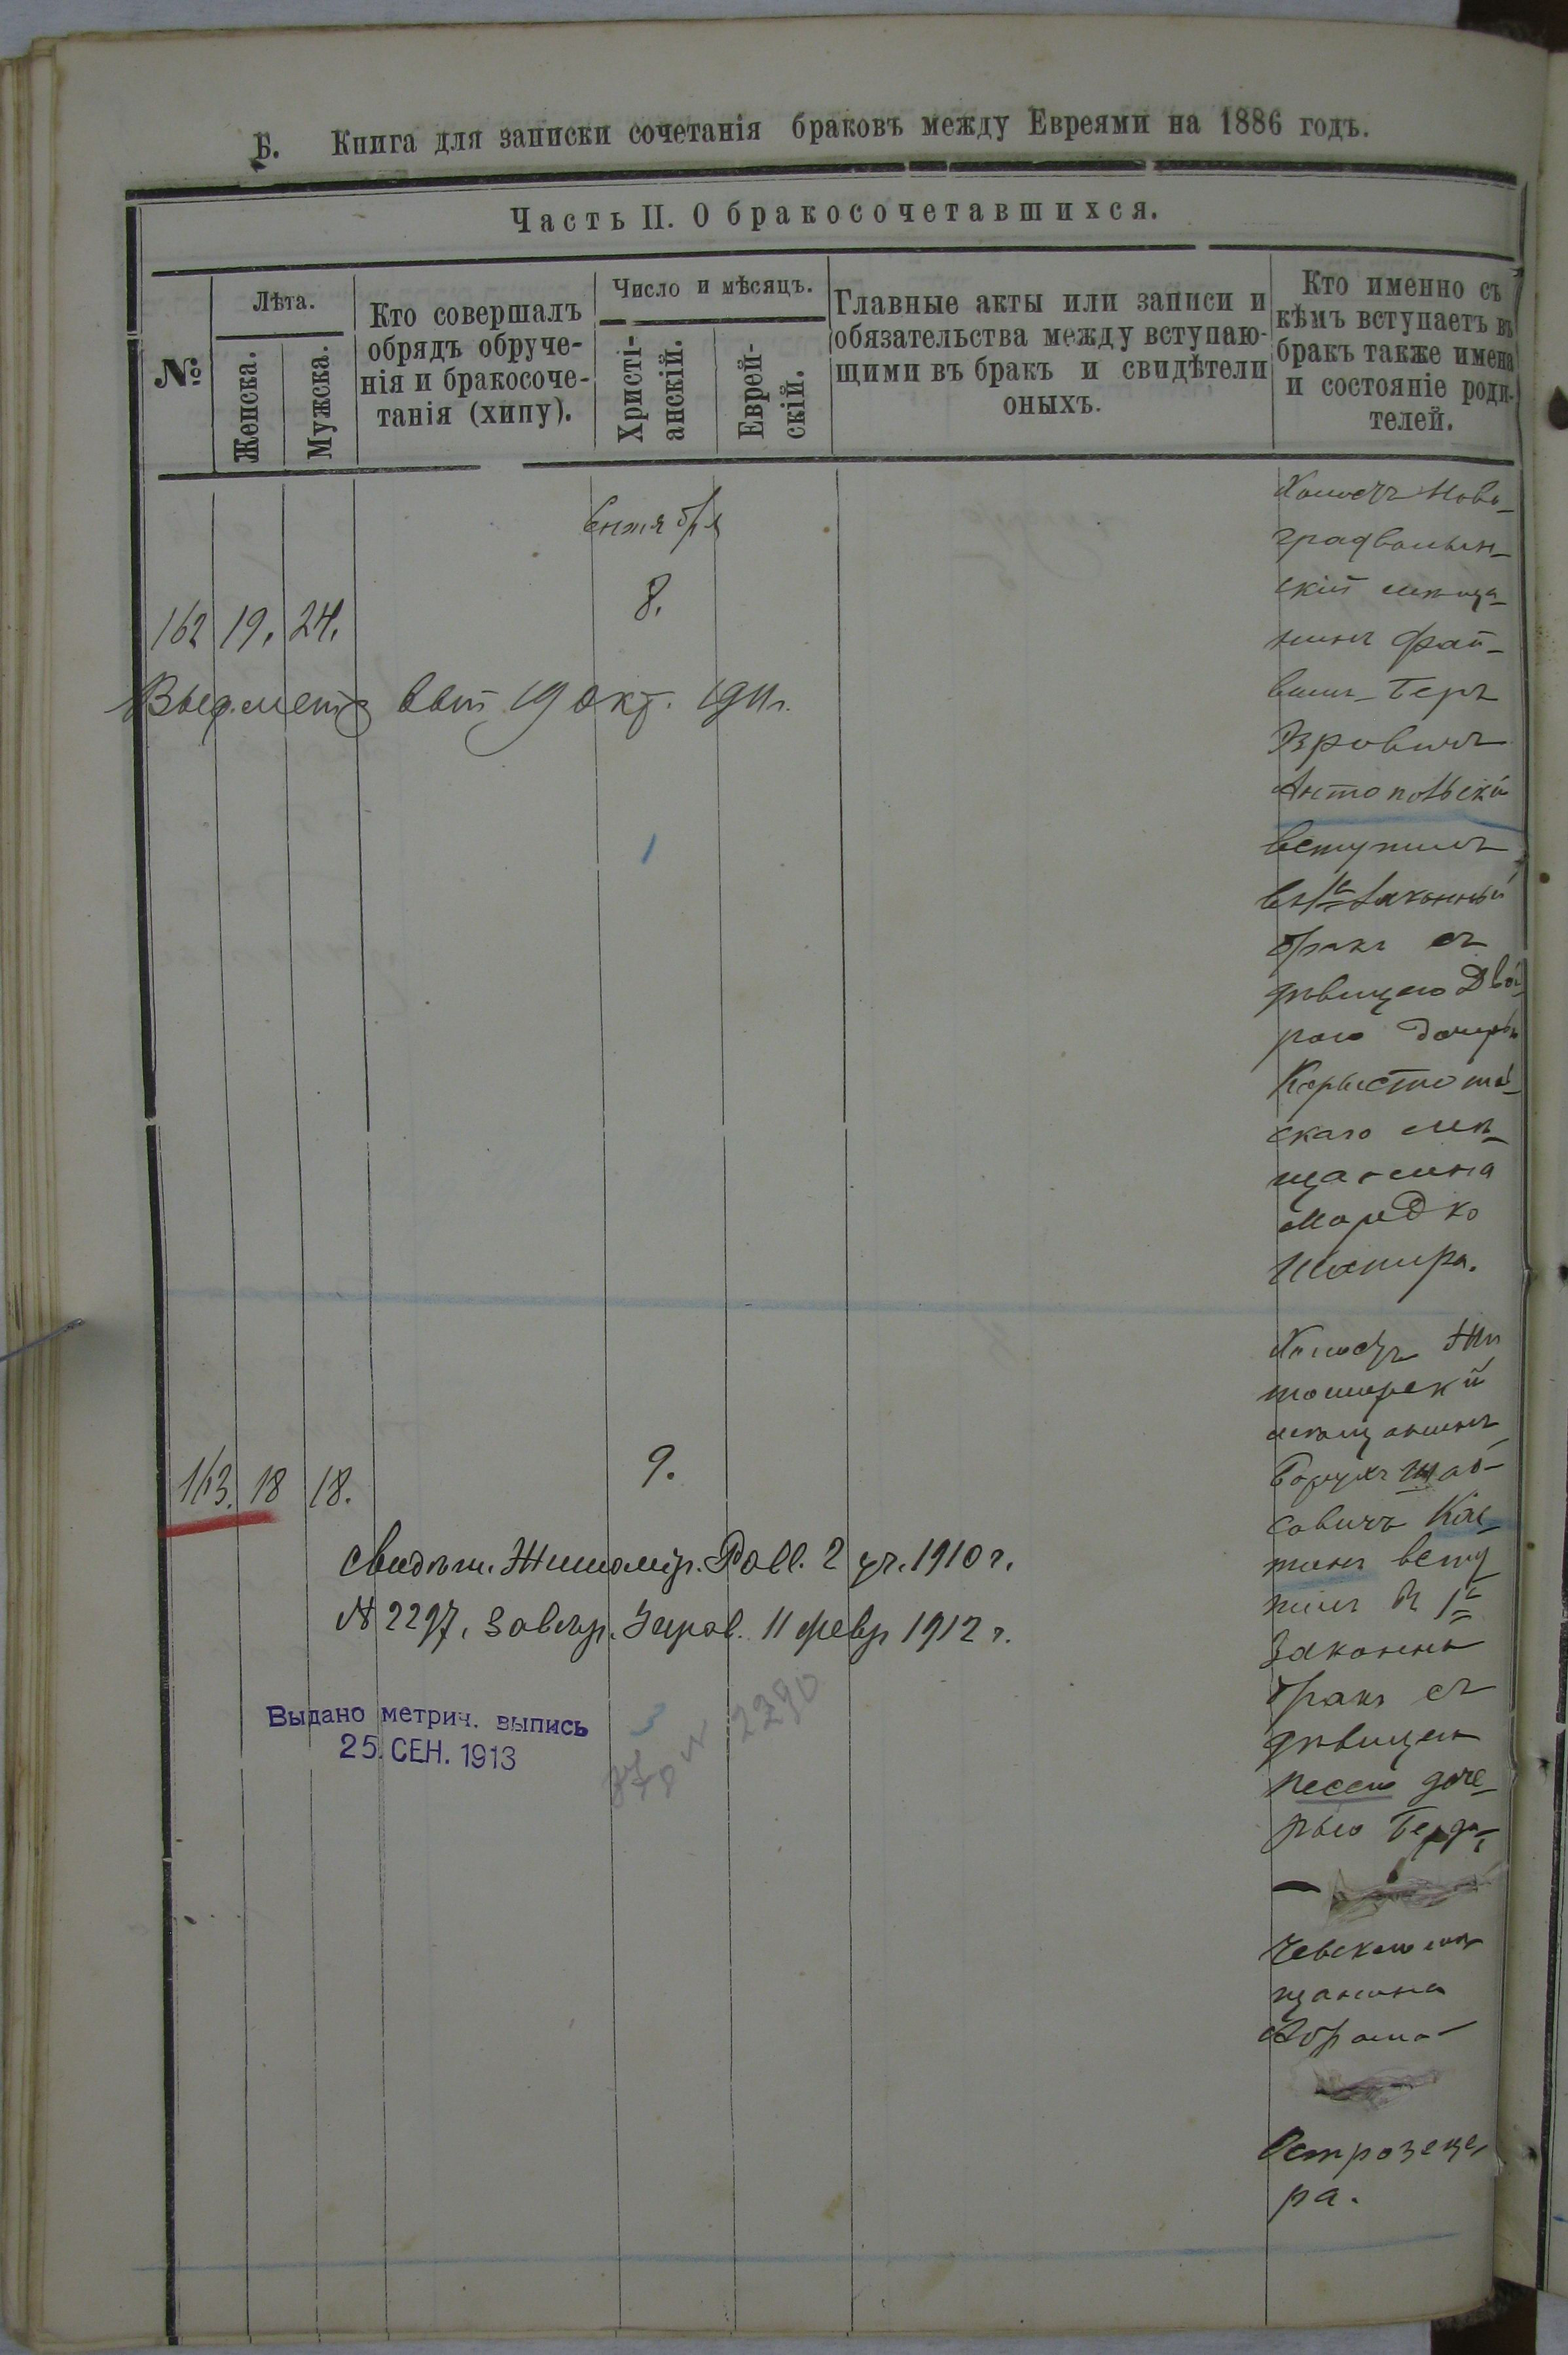 Б. Книга для записки сочетанія браковъ между Евреями на 1886 годъ.
Часть II. О бракосочетавшихся.
№
Лѣта.
Женска.
Мужска.
Кто совершалъ
обрядъ обруче-
нія и бракосоче-
танія (хипу).
Число и мѣсяцъ.
Христі-
анскій.
Еврей-
скій.
Главные акты или записи и
обязательства между вступаю-
щими въ бракъ и свидѣтели
оныхъ.
Кто именно съ
кѣмъ вступаетъ въ
бракъ также имена
и состояніе роди-
телей.
Сентября
162 19. 24. 8.
19 окт. 1911 г.
Холостъ Ново-
градволын-
скій мѣща-
нинъ Фай-
вишъ-Беръ
Антопольскій
вступилъ
въ 1й законный
бракъ съ
дѣвицею Двой-
рою дочерью
скаго мѣ-
щанина
Мордко
Шапира.
163. 18 18. 9.
Холостъ Жи
томирскій
мѣщанинъ
Борухъ
совичъ
всту
пилъ въ 1й
законный
бракъ съ
дѣвицею
Песею доче-
рьюБерди-
чевскаго мѣ
щанина
Абрама
Острозеце
ра.
Свидѣт. Житомір. Рав. 2 уч. 1910 г.
№ 2297, 11 февр 1912 г.
Выдано метрич. выпись
25. СЕН. 1913